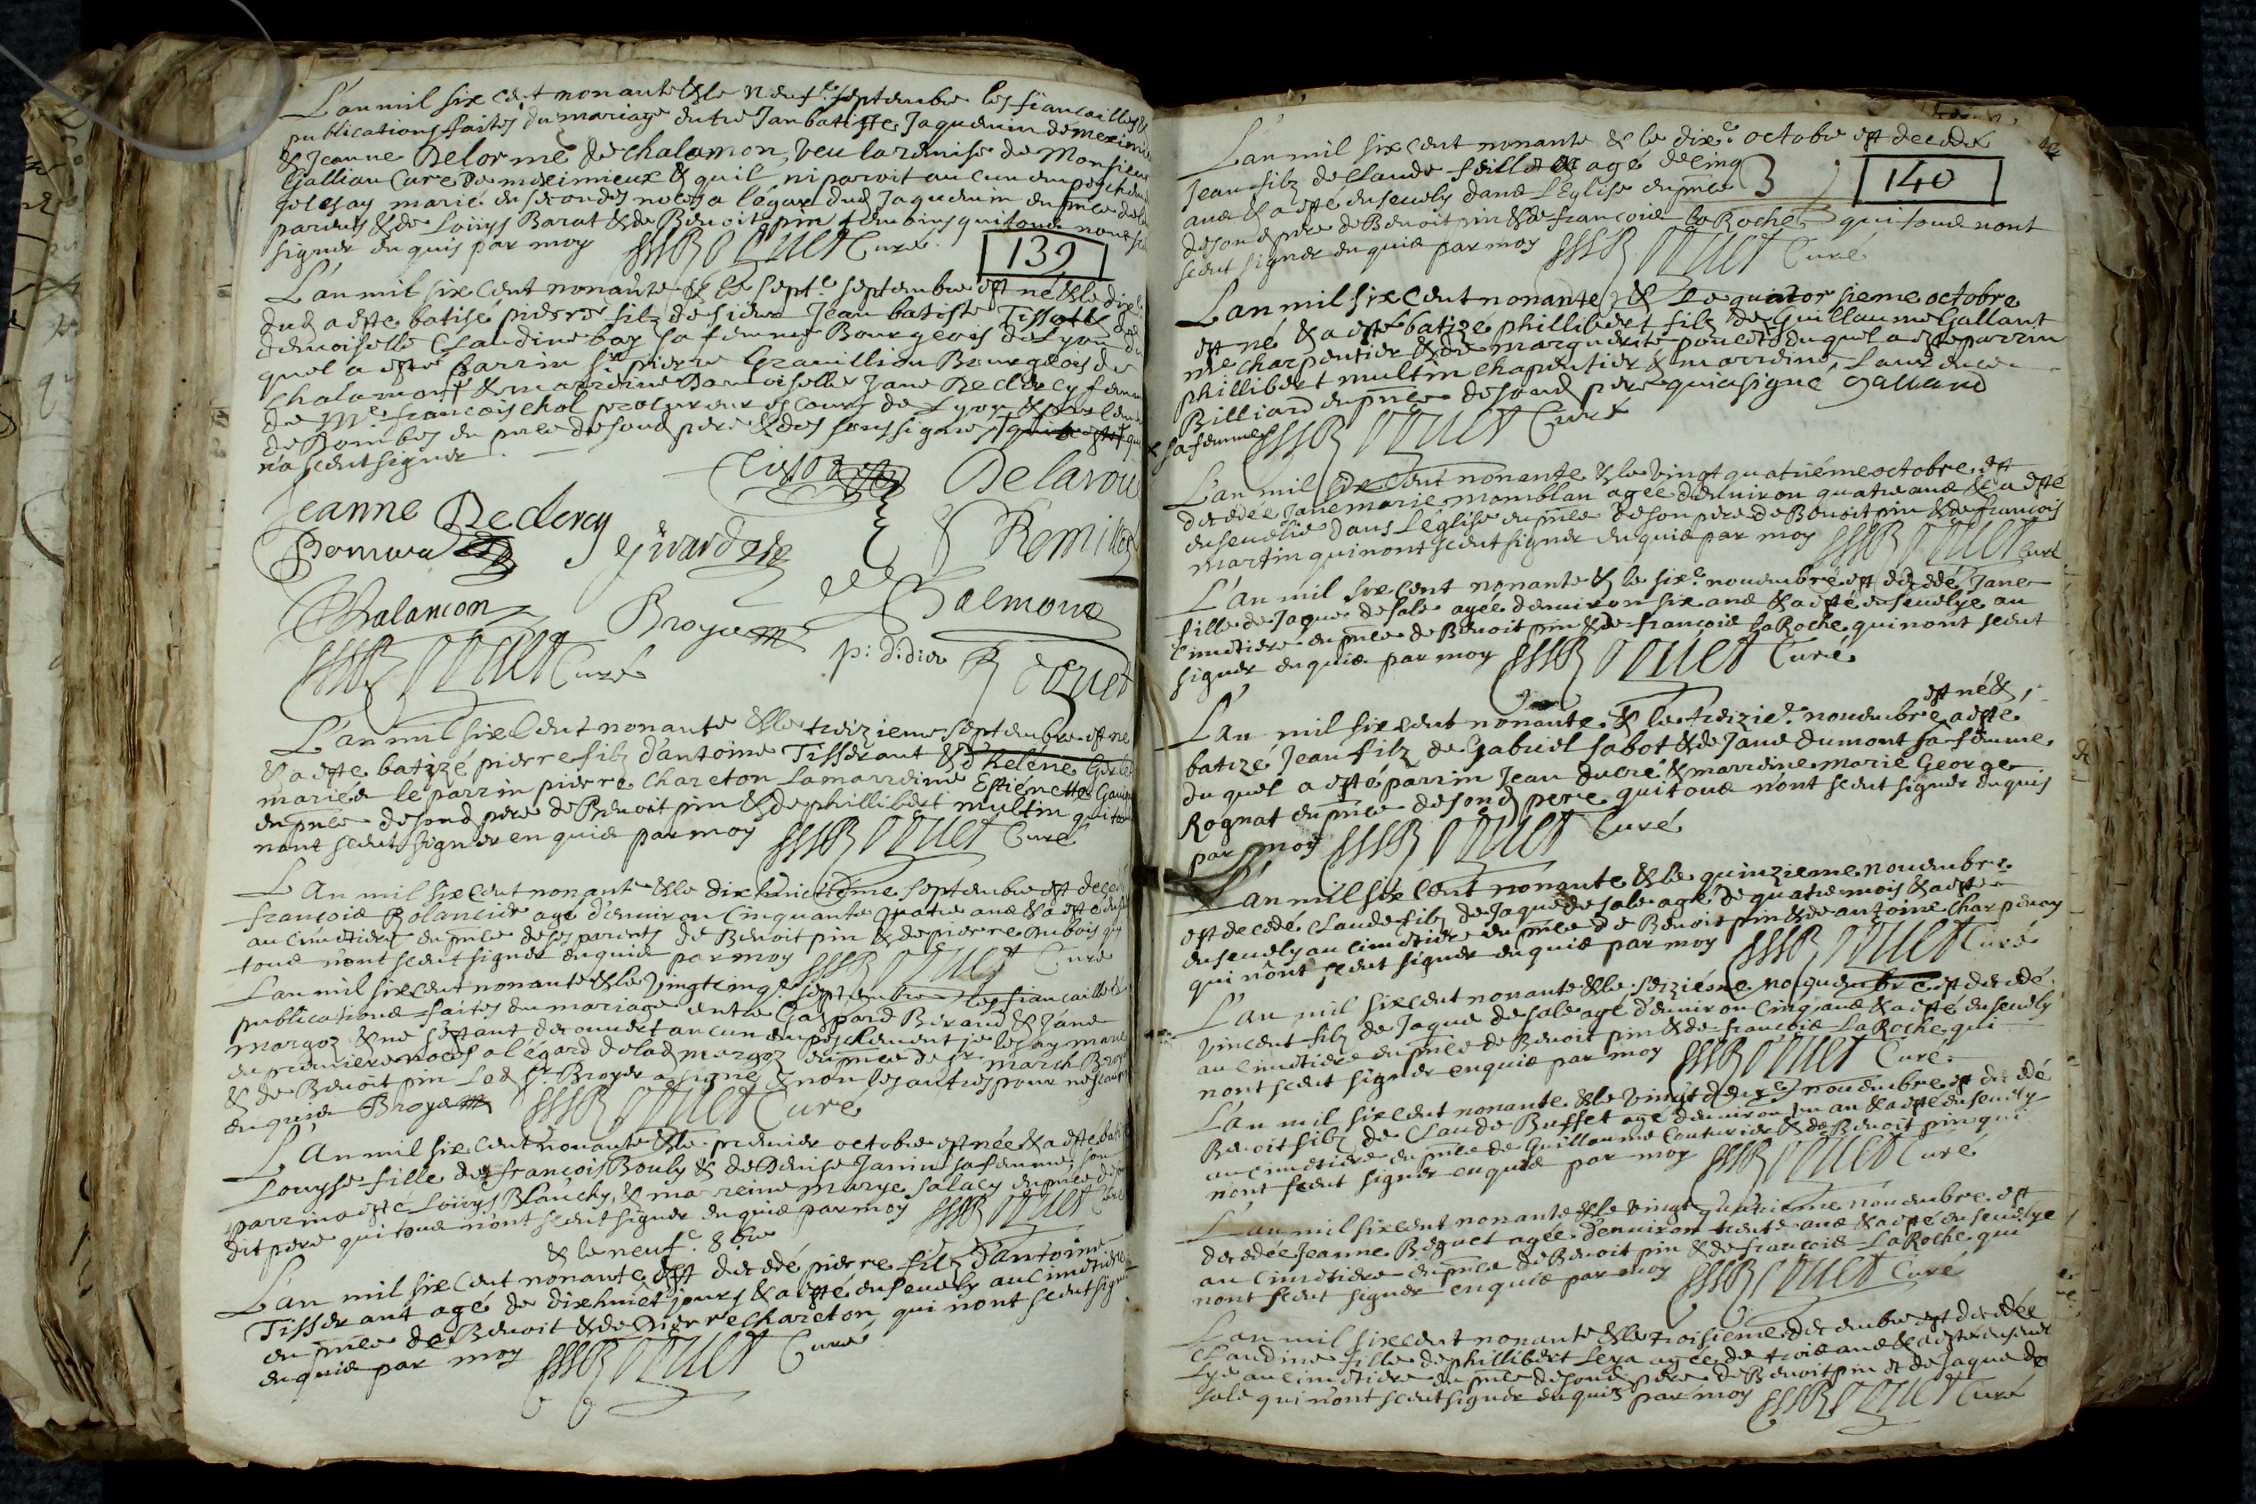 L'an mil six cent nonante & le neuf.e septembre les fiancailles &
publications faites du mariage entre Jan batiste Jaquemin de mexim
& Jeanne Delorme de chalamon, veu la remise de Monsieur
Gallian Curé de meximieux & quil ni paroit aucun
je les ay marié en secondes noces a légar dud Jaquemin en pnce de
parents & de Loüys Barat & de Benoit pin temoins qui tous nont
signer enquis par moy Curé
139
L'an mil six cent nonante & le sept.e septembre est né & le dix
dud a esté batisé pierre filz de sieur Jean batiste Tissot &
demoiselle Claudine bay sa femme Bourgeois de Lyon du
quel a esté parrin sr pierre Grauillion Bourgeois de
Chalamont & marreine Damoiselle Jane Declercy femme
de Me francois chol procureur es cours de Lyon &
de Dombes en pnce de soud pere & des soussignes
na sceut signer
Tissot Delarou
Jeanne Declercy
Girard Remilles
Chalancon Broyer Balmont
p: didier
Curé
L'an mil six cent nonante & le treizieme septembre est né
& a esté batizé pierre filz d'antoine Tisserant & d'heléne
mariée le parrin pierre Chareton la marreine Estienette
en pnce de soud pere de Benoit pin & de phillibert multin qui
nont sceut signer enquis par moy Curé
L'An mil six cent nonante & le dixhuictiéme septembre est
françois Rolancier agé d'enuiron Cinquante quatre ans & a esté
au cimetiere en pnce de ses parents de Benoit pin & de pierre dubois
tous nont sceut signer enquis par moy Curé
L'an mil six cent nonante & le vingtcinq.e septembre les fiancailles &
publications faites du mariage entre Gaspard Biraud & Jane
margoz & ne sestant decouuert aucun empeschement je les ay marié
en premiere noces a légard de lad margoz en pnce de sr march Broyer
& de Benoit pin Led sr Broyer a signé & non les autres pour ne
enquis Broyer Curé
L'An mil six cent nonante & le premier octobre est née & a esté
Louyse fille de françois Bouly & de Denise Janin sa femme, son
parrin a esté Loüys Blanchy, & mareine marye Salacy en pnce
dit pere qui tous nont sceut signer enquis par moy Curé
& le neuf.e 8bre
L'an mil six cent nonante est decedé pierre filz d'antoine
Tisserant agé de dixhuict jours & a esté enseuely au cimetiere
en pnce de Benoit & de pierre Chareton qui nont sceut
enquis par moy Curé
L'an mil six cent nonante & le dix.e octobre est decedé
Jean filz de Claude feillet agé de cinq
ans & a esté enseuely dans L'Eglise en pnce
140
de soud pere de Benoit pin & de françois la Roche qui tous nont
sceut signer enquis par moy Curé
L'an mil six cent nonante & le quatorsieme octobre
est né & a esté batizé phillibert filz de Guillaume Gallant
me charpentier & de marguerite poncet duquel a esté parrin
phillibert multin chapentier & marreine Laurence
Billiard en pnce de soud pere qui a signé Galland
x sa femme Curé
L'an mil six cent nonante & le vingt quatriéme octobre est
decedée Jane marie momblan agee denuiron quatre ans & a esté
enseuelie dans l'église en pnce de son pere de Benoit pin & de francois
martin qui nont sceut signer enquis par moy Curé
L'an mil six cent nonante & le six.e nouembre est decedé Jane
fille de Jaque de sale agée denuiron six ans & a esté enseuelye au
Cimetiere en pnce de Benoit pin & de françois la Roche qui nont sceut
signer enquis par moy Curé
est né &
L'an mil six cent nonante & le treizie.e nouembre a esté
batizé Jean filz de Gabriel sabot & de Jane dumont sa femme
du quel a esté parrin Jean ducré & marreine marie George
Rognat en pnce de soud pere qui tous nont sceut signer enquis
par moy Curé
L'an mil six cent nonante & le quinzieme nouembre
est decedé Claude filz de Jaque de sale agé de quatre mois & a esté
enseuely au cimetiere en pnce de Benoit pin & de antoine Charpenay
qui nont sceut signer enquis par moy Curé
L'an mil six cent nonante & le seziéme nouembre est decedé
vincent filz de Jaque de sale agé d'enuiron cinq ans & a esté enseuely
au cimetiere en pnce de Benoit pin & de françois La Roche qui
nont sceut signer enquis par moy Curé
L'an mil six cent nonante & le vingt deux.e nouembre est decedé
Benoit filz de Claude Buffet agé denuiron un an & a esté enseuely
au cimetiere en pnce de Guillaume Couturier & de Benoit pin qui
nont sceut signer enquis par moy Curé
L'an mil six cent nonante & le vingt quatrieme nouembre est
decedée Jeanne Béguet agée d'enuiron trente ans & a esté enseuelye
au cimetiere en pnce de Benoit pin & de françois La Roche qui
nont sceut signer enquis par moy Curé
L'an mil six cent nonante & le troisieme decembre est decedée
Claudine fille de phillibert Leya agée de trois ans & a esté enseue
lye au cimetiere en pnce de soud pere de Benoit pin & de Jaque de
sale qui nont sceut signer enquis par moy Curé